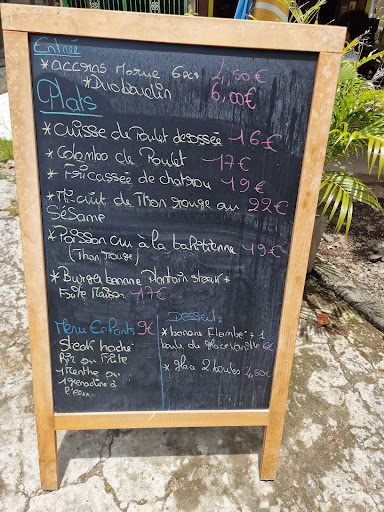 Entrée
* accras Morue 6 pcs 4,50€
* Duo boudin 6,00€
Plats
* Cuisse de Poulet desossée 16€
* Colombo de Poulet 17€
* Fricassée de chatrou 19€
* Mi-cuit de Thon rouge au 22€
Sésame
* Poisson cru à la tahitienne 19€
(Thon rouge)
* Burger banane Plantain steak +
Frite Maison 17€
Menu Enfants 9€
Steak haché
Riz ou Frite
1 Menthe ou
1 grenadine à
l'eau
Desserts
* banane Flambé + 1
boule de glace vanille 6€
* glace 2 boules 4,50€